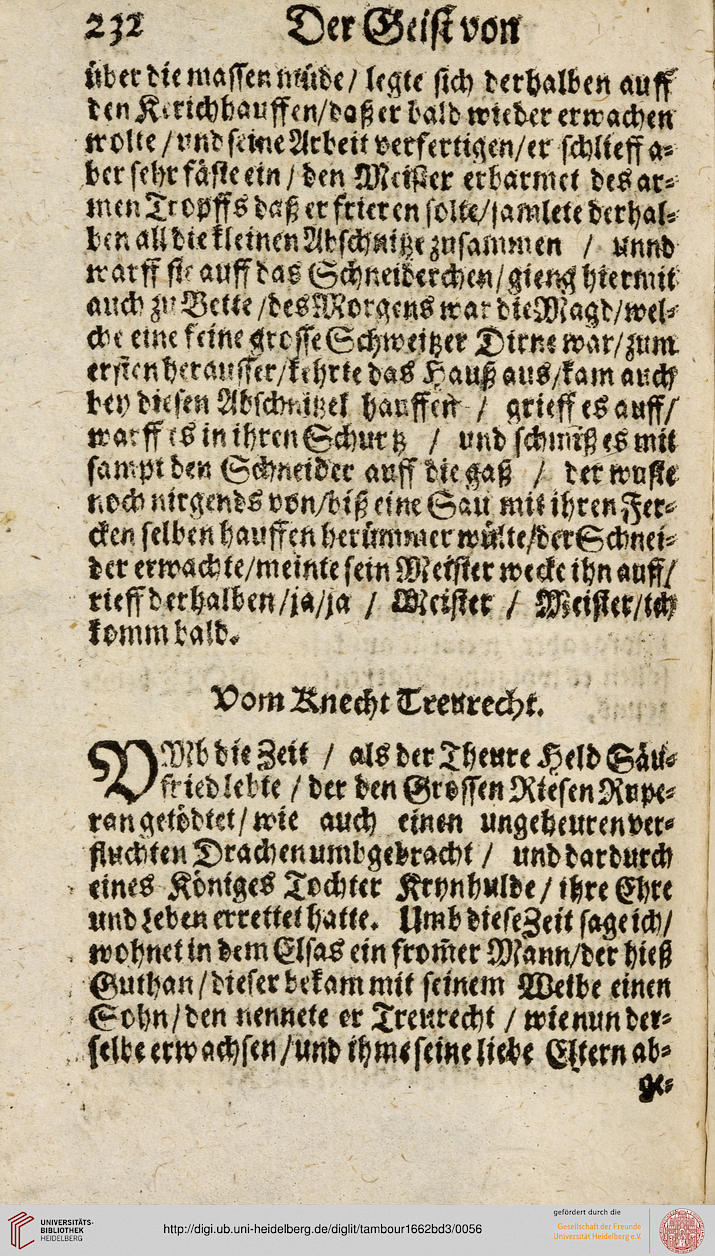 232 Der Geist von
über die massen müde / legte sich derhalben auff
den Kerichhauffen/daß er bald wieder erwachen
wolte / vnd seine Arbeit verfertigen/er schlieff a⸗
ber sehr fäste ein / den Meister erbarmet des ar⸗
men Tropffs daß er frieren solte/samlete derhal⸗
ben all die kleinen Abschnitze zusammen / unnd
warff sie auff das Schneiderchen/gieng hiermit
auch zu Bette /des Morgens war die Magd/wel⸗
che eine feine grosse Schweitzer Dirne war/zum
ersten heraussser/kehrte das Hauß aus/kam auch
bey diesen Abschnitzel hauffen / grieff es auff/
warff es in ihren Schurtz / und schmiß es mit
sampt den Schneider auff die gaß / der wuste
noch nirgends von/biß eine Sau mit ihren Fer⸗
cken selben hauffen herümmer wülte/der Schnei⸗
der erwachte/meinte sein Meister wecke ihn auff/
rieff derhalben /ja/ja / Meister / Meister/ich
komm bald.
Vom Knecht Treurecht.
VMb die Zeit / als der Theure Held Säu⸗
fried lebte / der den Grossen Riesen Rupe⸗
ran getödtet/ wie auch einen ungeheuren ver⸗
fluchten Drachen umbgebracht / und dardurch
eines Königes Tochter Krynhulde / ihre Ehre
und Leben errettet hatte. Umb diese Zeit sage ich/
wohnet in dem Elsas ein from̃er Mann/der hieß
Guthan / dieser bekam mit seinem Weibe einen
Sohn/den nennete er Treurecht / wie nun der⸗
selbe erwachsen /und ihme seine liebe Eltern ab⸗
ge⸗
UNIVERSITÄTS-
BIBLIOTHEK
HEIDELBERG
http://digi.ub.uni-heidelberg.de/diglit/tambour1662bd3/0056
gefördert durch die
Gesellschaft der Freunde
Universität Heidelberg e.V.